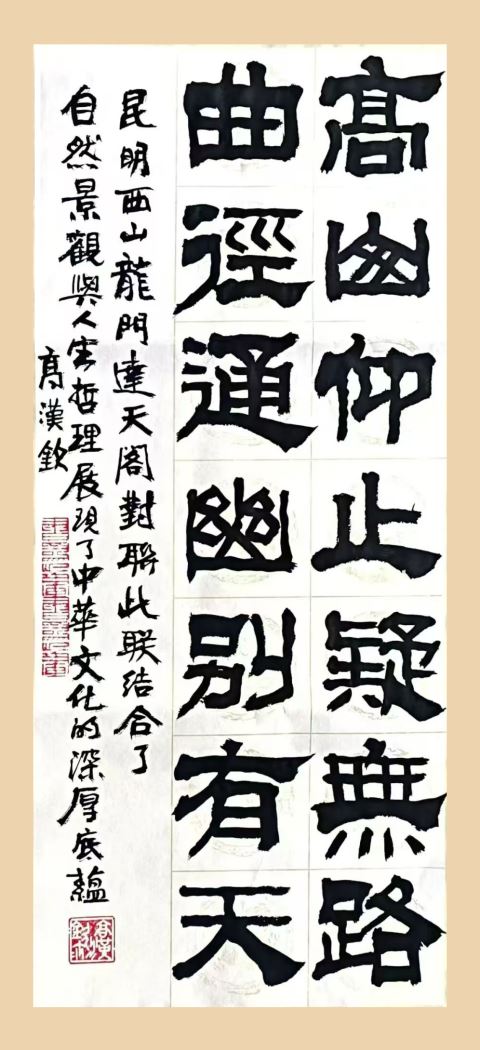 高山仰止疑無路
曲徑通幽别有天
昆明西山龍門達天閣對聯此联结合了
自然景觀與人生哲理展現了中華文化的深厚底蘊
高漢欽